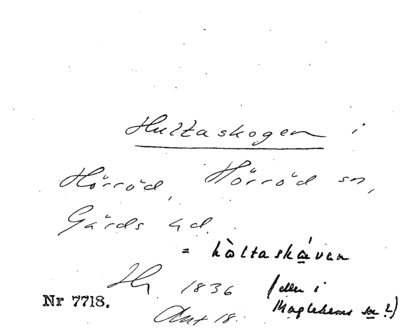 Hultaskogen i
Hörröd, Hörröd sn,
Gärds hd.
= hòltaskåven
1836 (den i
Maglehems sn?)
Nr 7718.
Ant 18